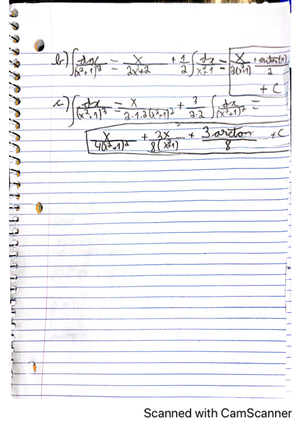 b) ∫ dx/(x²+1)² = x/(2x²+2) + 1/2 ∫ dx/(x²+1) = x/2(x²+1) + arctan(x)/2
+ C
c) ∫ dx/(x²+1)³ = x/(2·1·2(x²+1)²) + 3/(2·2) ∫ dx/(x²+1)² =
x/4(x²+1)² + 3x/8(x²+1) + 3arctan/8 + C
Scanned with CamScanner